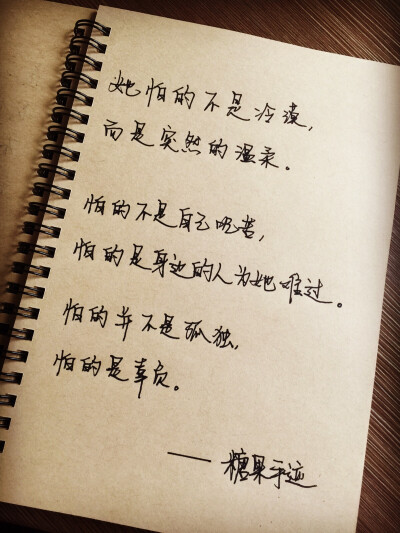 她怕的不是冷漠，
而是突然的温柔。
怕的不是自己吃苦，
怕的是身边的人为她难过。
怕的并不是孤独，
怕的是辜负。
—— 糖果手迹